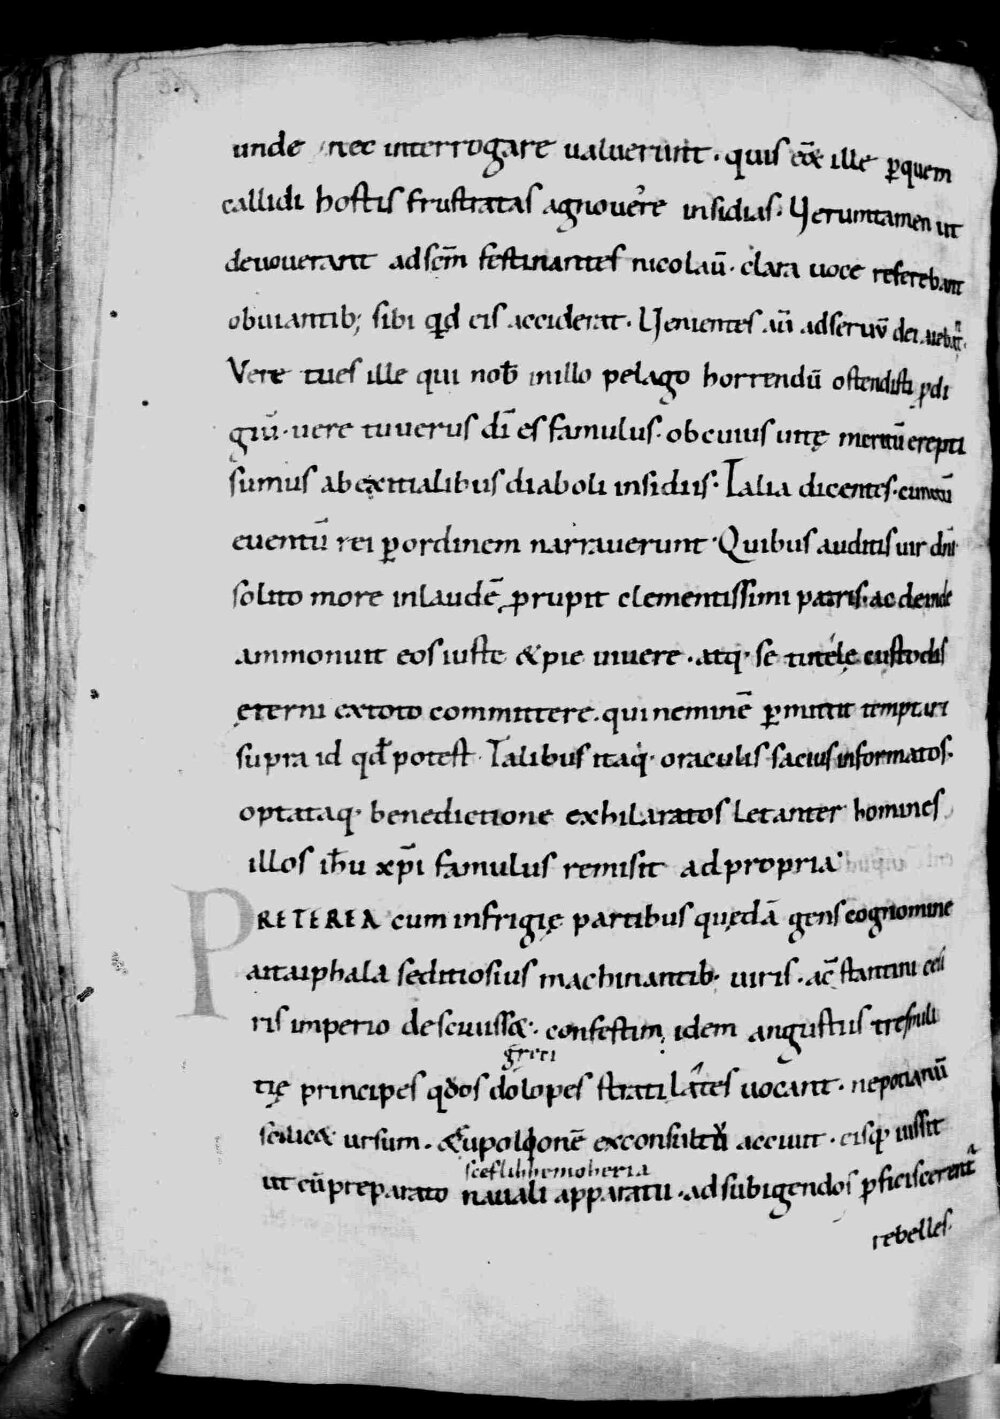 unde nec interrogare ualuerunt · quis eēt ille ꝑquem
callidi hostis frustratas agnouere insidias · Ueruntamen ut
deuouerant adscm̄ festinantes nicolaū · clara uoce referebant
obuiantib; sibi qd̄ eis acciderat · Uenientes aū adseruū dei aiebant ·
Vere tu es ille qui nob̄ inillo pelago horrendū ostendisti ꝓdi
giū · uere tu uerus dī es famulus · ob cuius uitę meritū erepti
sumus abexitialibus diaboli insidiis · Talia dicentes · cunctū
euentū rei ꝑordinem narrauerunt · Quibus auditis uir dn̄i
solito more inlaudē ꝓrupit clementissimi patris · ac deinde
ammonuit eos iuste &pie uiuere · atq · se tutelę custodis
ęterni extoto committere · qui neminē ꝑmittit temptari
supra id qd̄ potest · Talibus itaq · oraculis sacius informatos ·
optataq · benedictione exhilaratos letanter homines
illos ih̄u xp̄i famulus remisit adpropria ·
PRETEREA cum infrigię partibus quędā gens cognomine
aitaiphala seditiosius machinantib · uiris · ac̄ stantini cęsa
ris imperio descuiss& · confestim idem augustus tres mili
greci
tię principes qdos dolopes stratilates uocant · nepotianū
scilic& ursum · &eupolionē exconsultū acciuit · eisq iussit
scesliħnemoberia
ut cū preparato nauali apparatu · adsubigendos ꝓficiscerent̄
rebelles ·